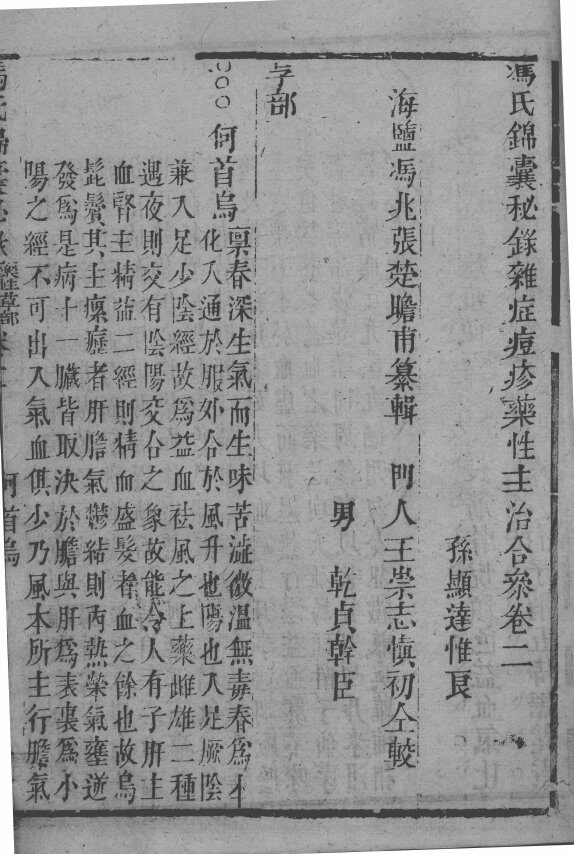 馮氏錦囊秘錄雜症痘疹藥性主治合參卷二
孫顯達惟良
海鹽馮兆張楚瞻甫纂輯 門人王崇志慎初仝較
男 乾貞幹臣
部
何首烏 稟春深生氣而生味苦澁微溫無毒春爲木
化入通於肝外合於風升也陽也入足厥陰
兼入足少陰經故爲益血祛風之上藥雌雄二種
遇夜則交有陰陽交合之象故能令人有子肝主
血腎主精益二經則精血盛髮者血之餘也故烏
髭鬢其主瘰癧者肝膽氣鬱結則內熱榮氣壅逆
發爲是病十一臟皆取決於膽與肝爲表裏爲小
陽之經不可出入氣血俱少乃風本所主行膽氣
何首烏